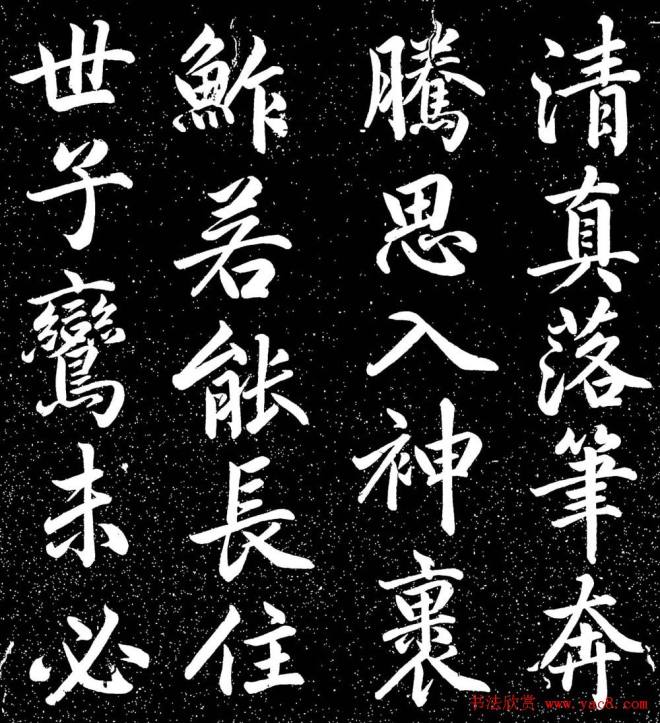 清真落筆奔
騰思入神裏
鮓若能長住
世子鸞未必
书法欣赏 www.yac8.com